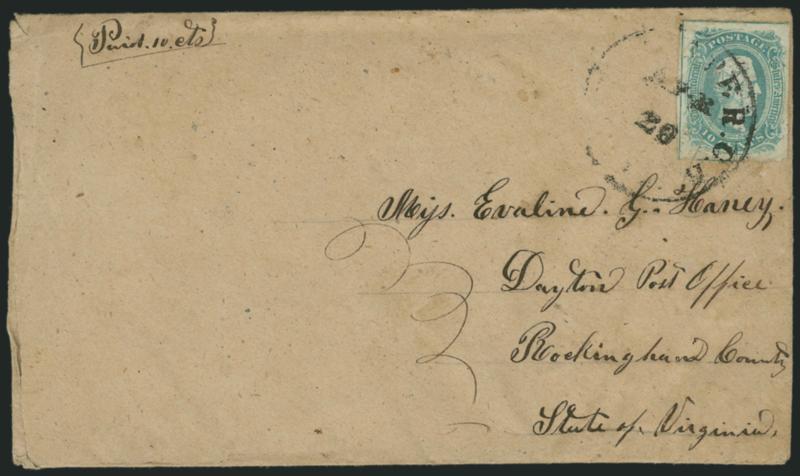 Paid. 10. cts
POSTAGE
APR
20
Miss. Evaline. G. Haney.
Dayton Post Office
Rockingham County
State of. Virginia.